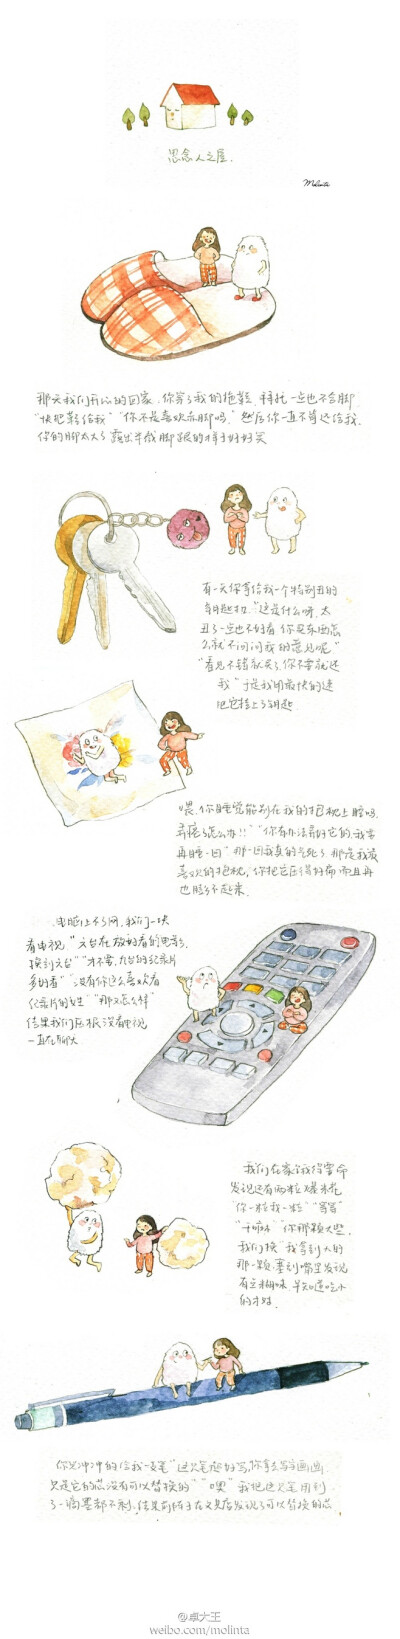 思念人之屋.
Molinta
那天我们开心的回家.你穿了我的拖鞋.拜托一点也不合脚
"快把鞋给我""你不是喜欢赤脚吗."然后你一直不肯还给我.
你的脚太大了露出半截脚跟的样子好好笑
有一天你拿给我一个特别丑的
钥匙扣."这是什么呀.太
丑了一点也不好看.你买东西怎
么就不问问我的意见呢"
"看见不错就买了.你不要就还
我"于是我用最快的速
把它挂上了钥匙
喂.你睡觉能别在我的抱枕上睡吗.
弄瘪了怎么办!!""你有办法弄好它的.我要
再睡一回"那一回我真的气死了.那是我最
喜欢的抱枕,你把它压得好扁而且再
也胖不起来.
电脑上不了网.我们一块
看电视."六台在放好看的电影.
换到六台""才不要.九台的纪录片
多好看""没有你这么喜欢看
纪录片的女生""那又怎么样"
结果我们压根没看电视
一直在聊天
我们在家饿得要命
发现还有两粒爆米花
"你一粒我一粒""等等"
"干嘛""你那颗大些.
我们换"我拿到大的
那一颗.塞到嘴里发现
有立糊味.早知道吃小
的才好.
你兴冲冲的给我一支笔"这只笔超好写,你拿去写字画画
只是它的芯没有可以替换的""噢"我把这只笔用到
了一滴墨都不剩.结果前阵子在文具店发现了可以替换的芯
@卓大王
weibo.com/molinta